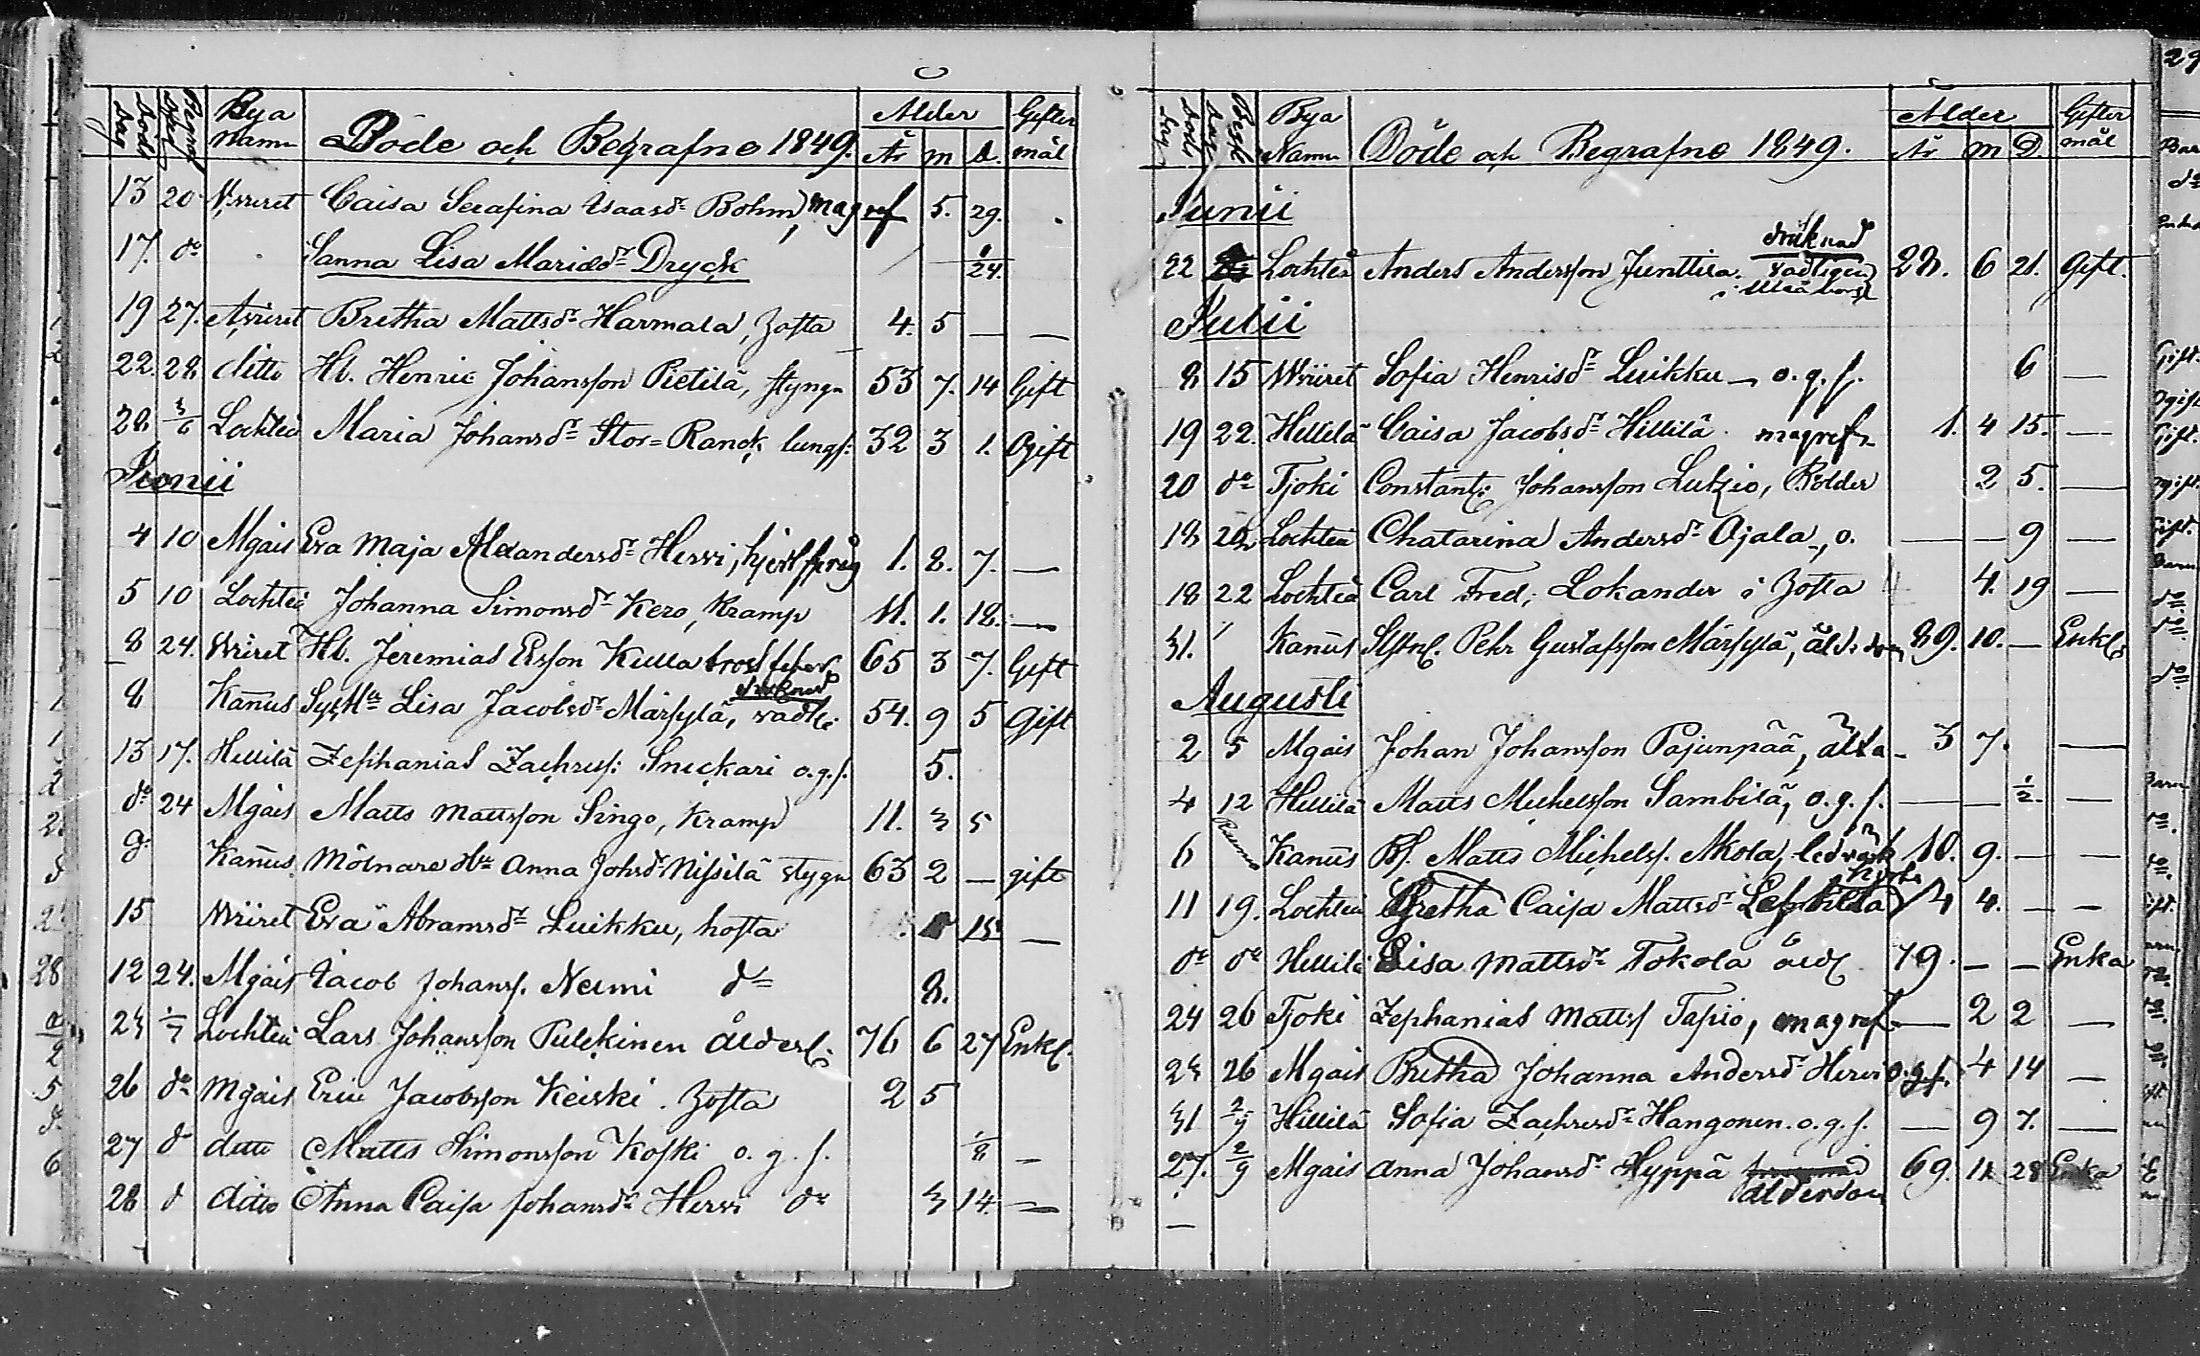 Död dag Begraf dag Bya Namn Döde och Begrafne 1849. Ålder År m D. Giftermål
13 20 Caisa Serafina Isaasdr Bohm, magref 5. 29.
17. do Sanna Lisa Mariædr Dryck 1/24.
19 27. Bretha Mattsdr Harmala, hosta 4. 5 — —
22. 28. ditto Hb. Henric Johansson Pietilä, styngn 53 7. 14 Gift
28 3/6 Lochteå Maria Johansdr Stor=Ranck lungs: 32 3 1. Ogift
Junii
4 10 Mgais Eva Maja Alexandersdr Hervi, 1. 8. 7. —
5 10 Lochteå Johanna Simonsdr Kero, Kramp 11. 1. 18. —
8 24. Wviiret Hb. Jeremias Ersson Kulla bröstfeber 65 3 7. Gift
drcknad
8 Kanus Lisa Jacobsdr Märsylä, vadl: 54. 9 5 Gift
13 17. Hillilä Zephanias Zachrisf: Snickari o.g.s. 5.
do 24 Mgais Matts Mattsson Singo, Kramp 11. 3 5
d Kanus Mölnare Anna Johsdr Nissilä stygn 63 2 — gift
15 Wviiret Eva Abramsdr Luikku, hosta 15. —
12 24. Mgais Jacob Johanss. Nermi do 8.
23 1/7 Lochteå Lars Johansson Pulckinen ålders: 76 6 27 Enkl.
26 do Mgais Eric Jacobsson Keiski. hosta 2 5
27 d ditto Matts Simonsson Koski o. g. s. 1/8 —
28 d ditto Anna Caisa Johansdr Hervi do 3 14. —
Död dag Begr dag Bya Namn Döde och Begrafne 1849. Ålder År m D. Giftermål
Junii
druknad
22 Lochteå Anders Andersson Junttila. vadligen 28. 6 21. Gift.
i Uleåborg
Julii
8 15 Wviiret Sofia Henrisdr Luikku — o.g.s. 6 —
19 22. Hillilä Caisa Jacobsdr Hillilä. magref 1. 4 15. —
20 do Tjoki Constant: Johansson Lutzio, Bölder 2 5. —
18 22 Lochteå Chatarina Andersdr Ojala —, o. — — 9 —
18 22 Lochteå Carl Fred; Lokander i hosta 4. 19 —
31. Kanus Pehr Gustafsson Märsylä, åld: dom 89. 10. — Enkl:
Augusti
2 5 Mgais Johan Johansson Pajunpää, älta — 3 7. —
4 12 Hillilä Matts Michelsson Sambilä, o.g.s. — — 1/2. —
6 Kanus Bs. Matts Michelss. Akola, ledvärk 10. 9. — —
11 19. Lochteå Gretha Caisa Mattsdr 4 4. — —
do do Hillilä Lisa Mattsdr Tokola åld 79. — — Enka
24 26 Tjoki Zephanias Mattss Tapio, magref — 2 2 —
23 26 Mgais Bretha Johanna Andersdr Hervi o.g.s. 4 14 —
31 2/9 Hillilä Sofia Zachrisdr Hangonen. o.g.s. — 9 7. —
27. 2/9 Mgais Anna Johansdr Hyppä 69. 11 28 Enka
ålderdom